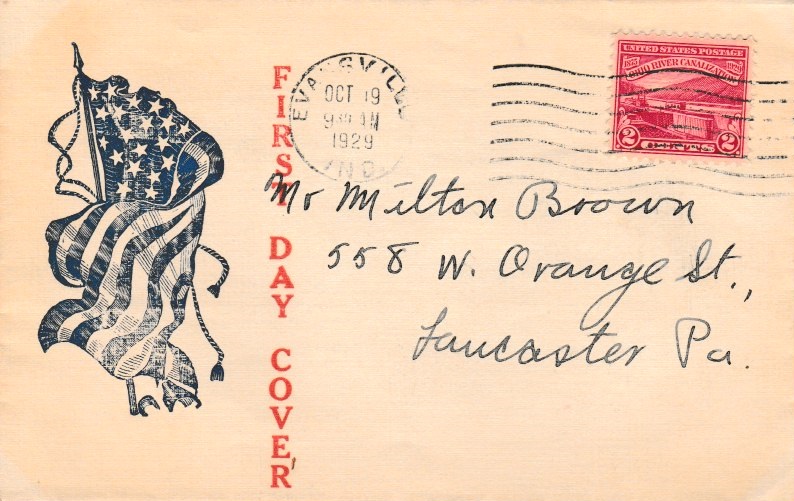 FIRST DAY COVER
EVANSVILLE
OCT 19
AM
1929
IND.
UNITED STATES POSTAGE
1875 1929
OHIO RIVER CANALIZATION
2 CENTS 2
Mr Milton Brown
558 W. Orange St.,
Lancaster Pa.